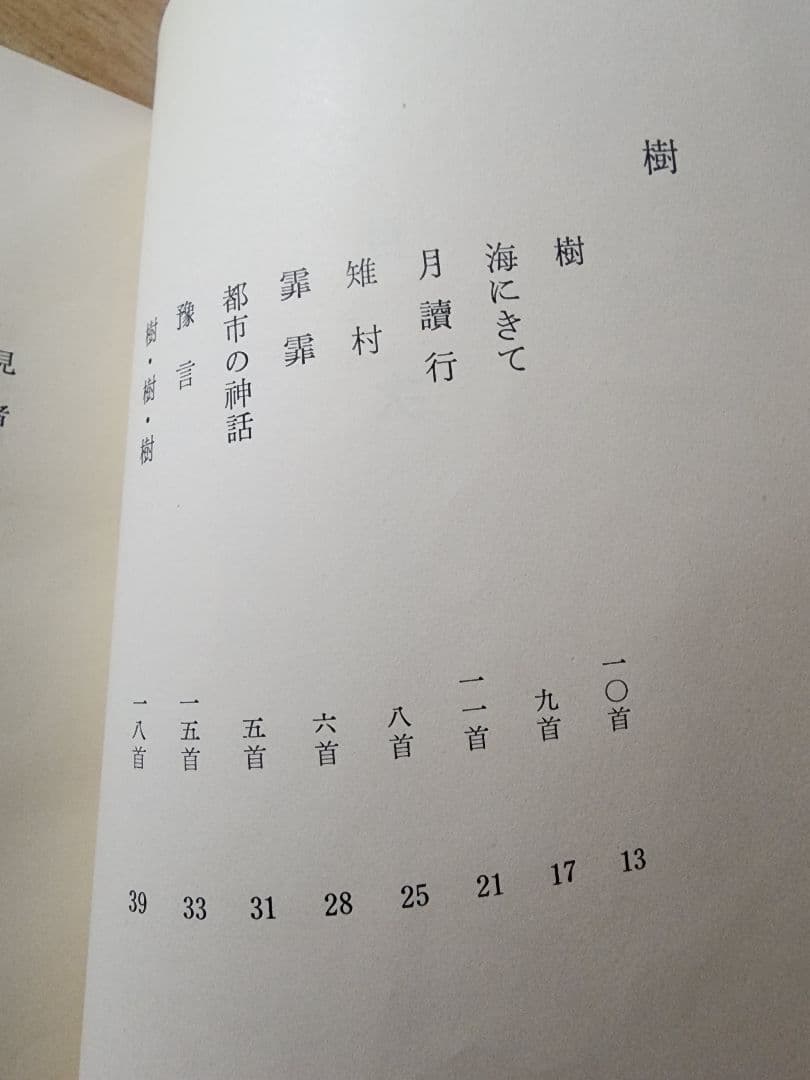 樹
樹 一〇首 13
海にきて 九首 17
月讀行 一一首 21
雉村 八首 25
霏霏 六首 28
都市の神話 五首 31
豫言 一五首 33
樹・樹・樹 一八首 39